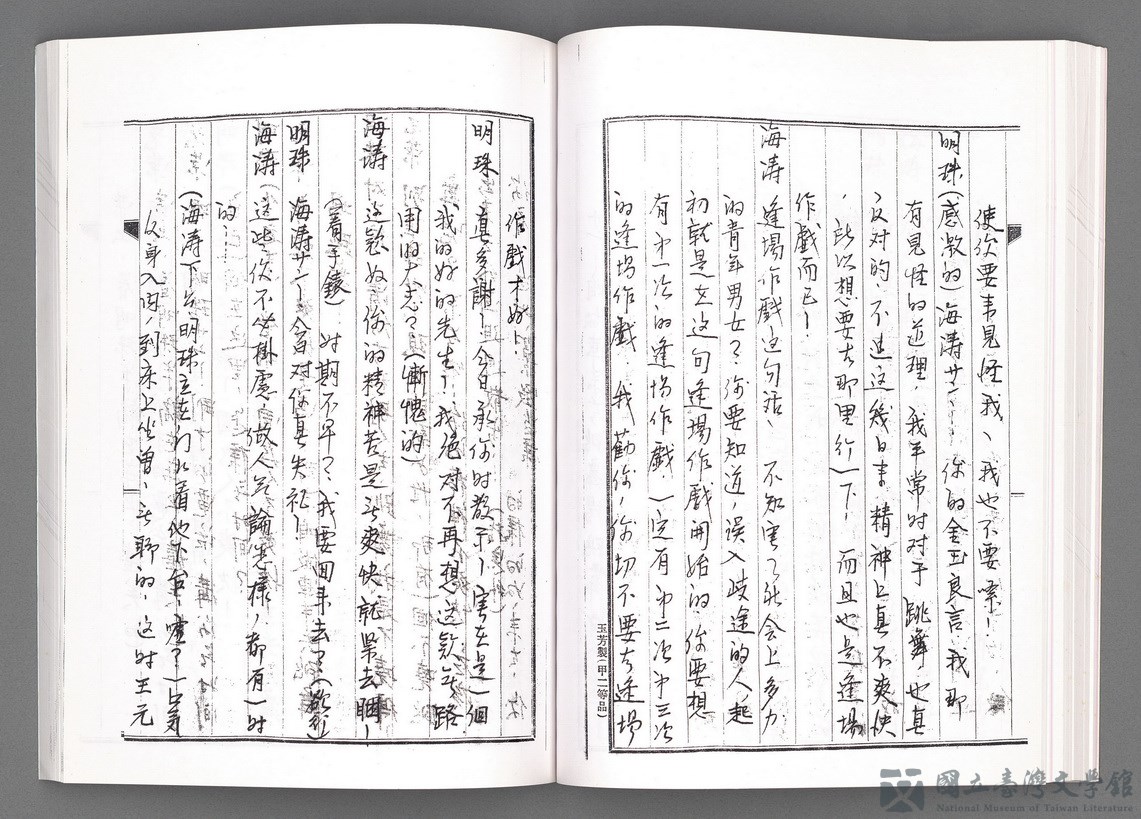 使你要来見怪我、我也不要緊！
明珠（感激的）海涛サン！你的金玉良言、我那
有見怪的道理、我平常时对于跳舞也真
反对的、不过这幾日来、精神上真不爽快
、所以想要去那里行一下！而且也是逢場
作戲而已！
海涛 逢場作戲这句话、不知害了社会上多少
的青年男女？你要知道、误入歧途的人起
初就是在这句逢場作戲開始的、你要想
有第一次的逢場作戲、一定有第二次第三次
的逢場作戲、我勸你、你切不要去逢場
玉芳製（甲二等品）
作戲才好！
明珠 真多謝！今日承你对教示！实在是一個
我的好的先生！我绝对不再想这款無路
用的大志？（慚愧的）
海涛 这款好、你的精神若是无爽快、就早去睏！
（看手錶）时期不早？我要回来去？（欲行）
明珠 海涛サン！今日对你真失礼！
海涛 这些你不必掛慮、做人无論怎樣、都有一时
的！
（海涛下去、明珠立在门口看他下去、噓？一口気
反身入内、到床上坐着、无聊的、这时王元
國立臺灣文學館
National Museum of Taiwan Literature